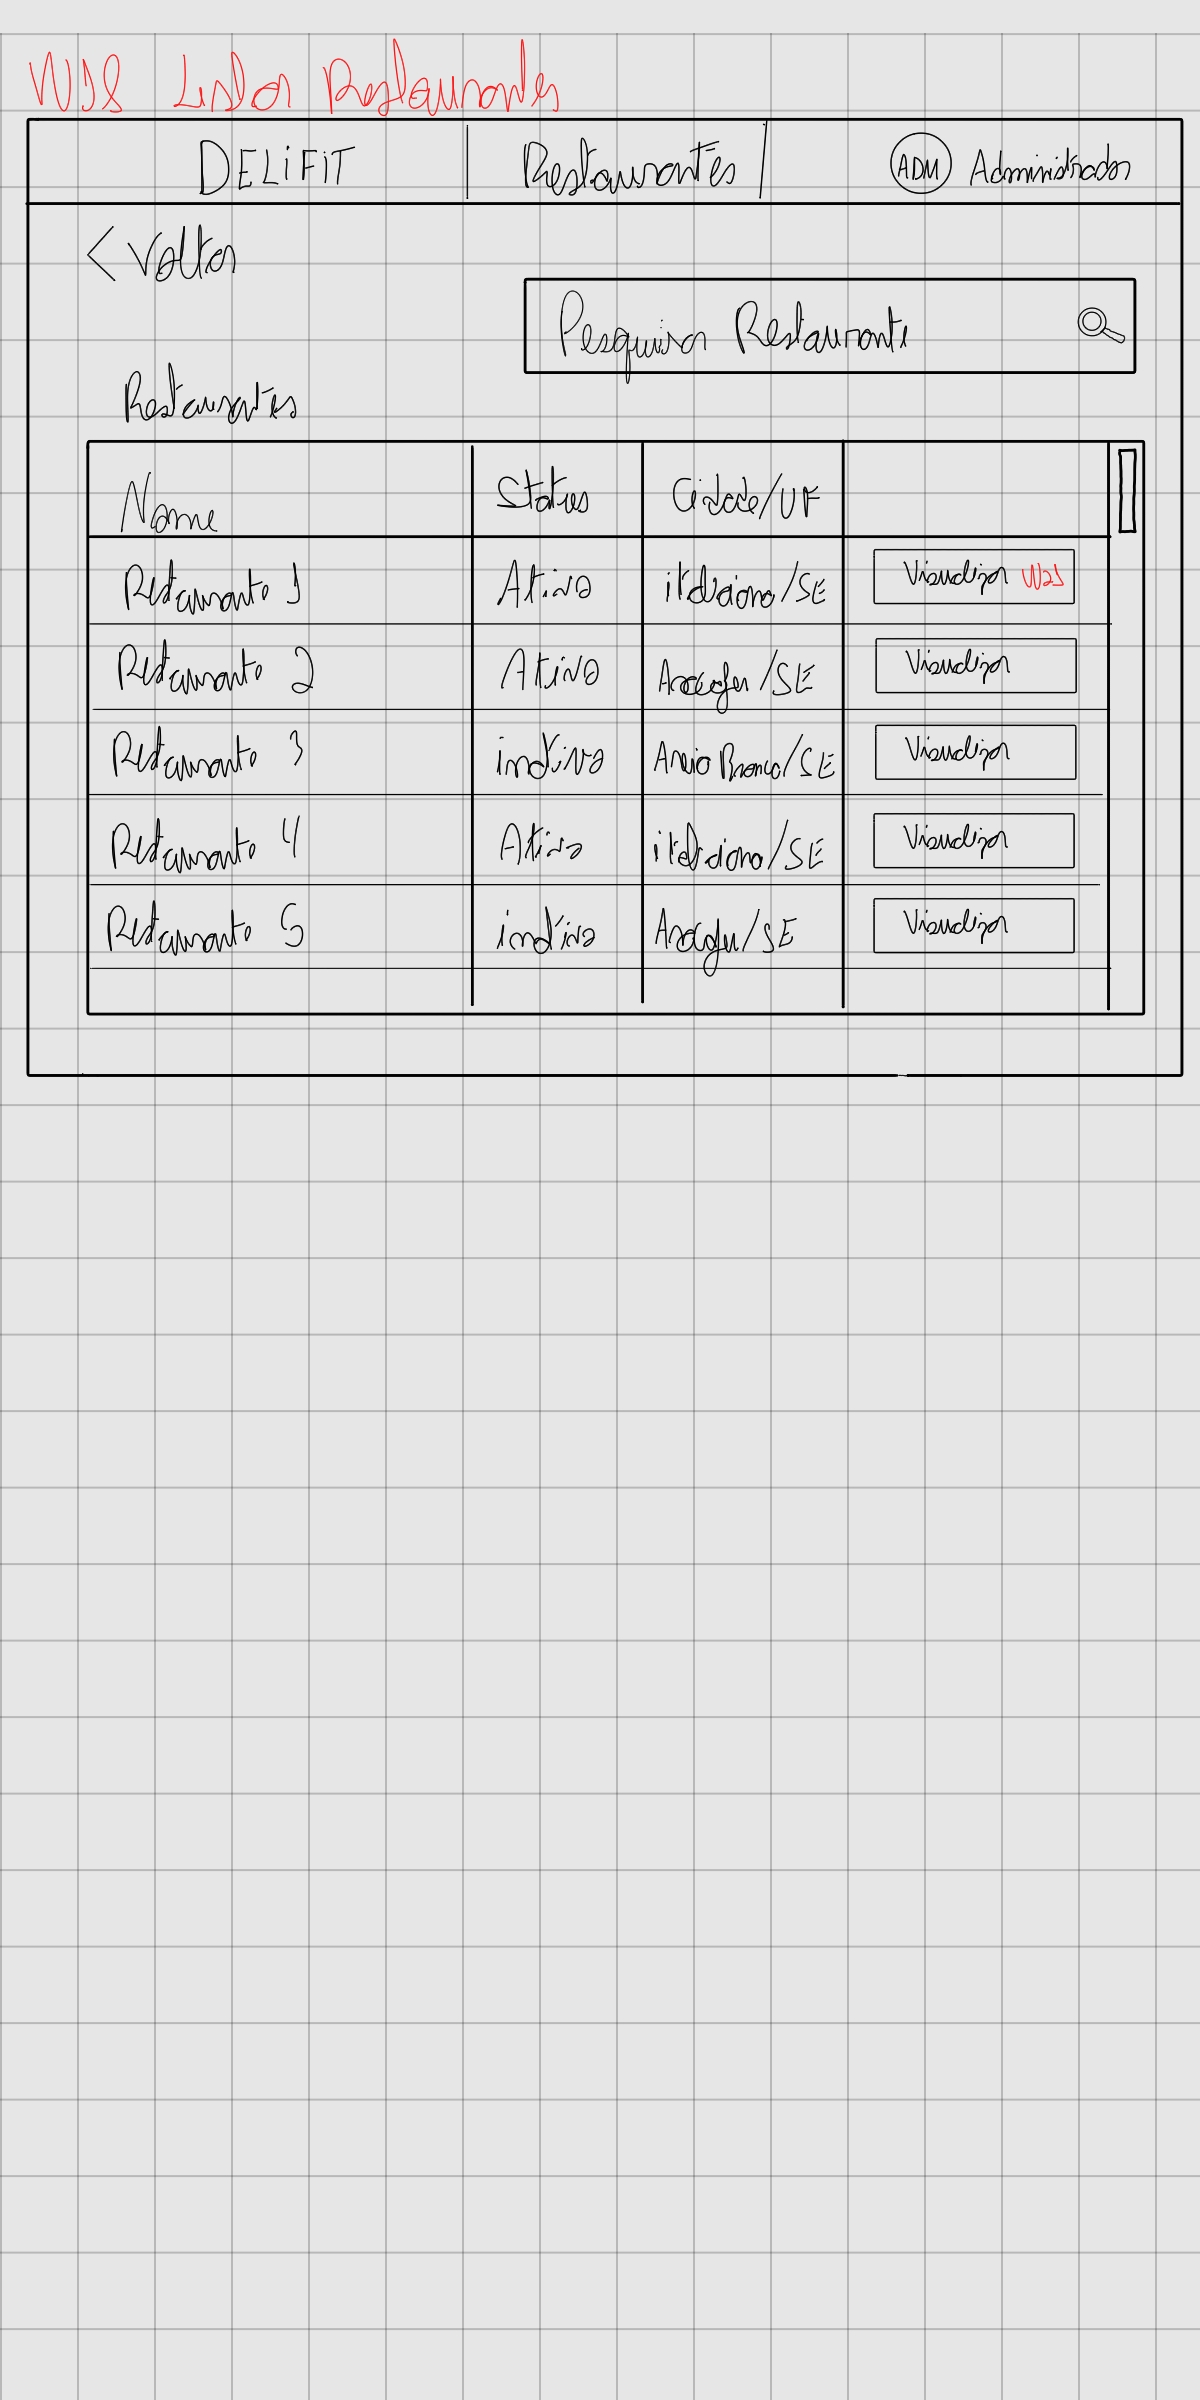 W18 Listar Restaurantes
DELiFiT Restaurantes ADM Administrador
< Voltar
Pesquisar Restaurante
Restaurantes
Nome Status Cidade/UF
Restaurante 1 Ativo itabaiana/SE Visualizar W21
Restaurante 2 Ativo Aracaju/SE Visualizar
Restaurante 3 inativo Areia Branca/SE Visualizar
Restaurante 4 Ativo itabaiana/SE Visualizar
Restaurante 5 inativo Aracaju/SE Visualizar